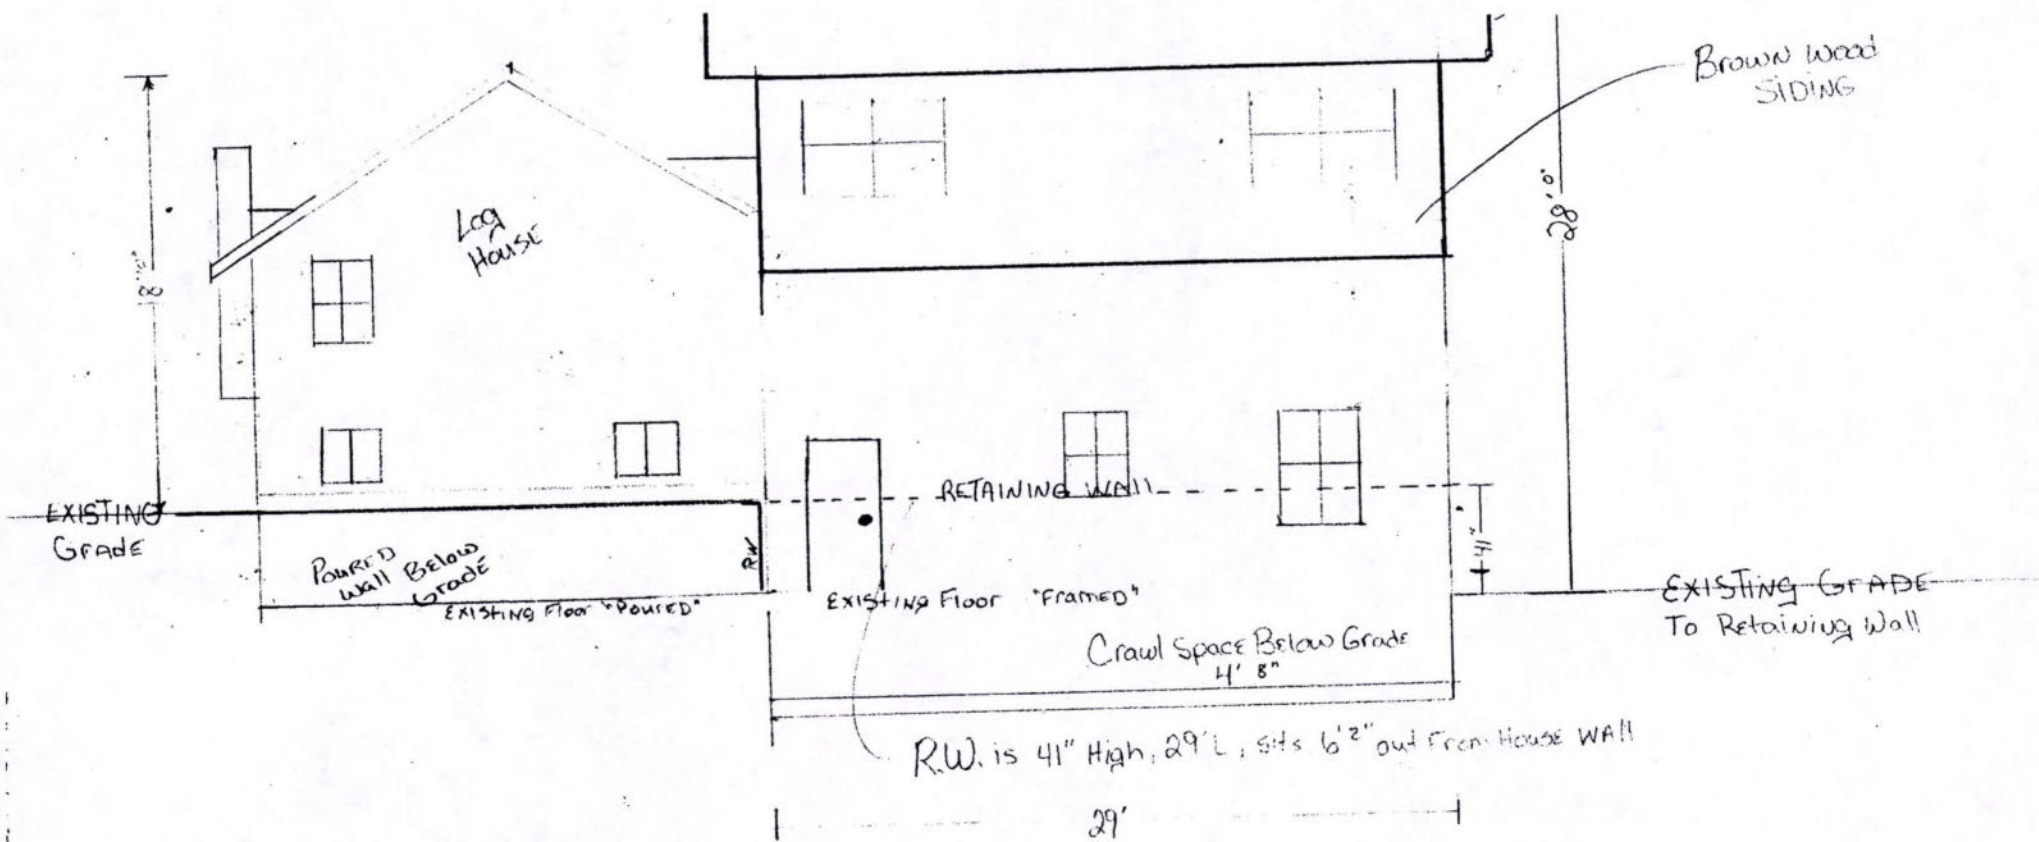 Brown Wood
SIDING
Log
HOUSE
28' 0"
EXISTING
GrAdE
RETAINING WAll
POURED
Wall Below
Grade
R.W.
41"
EXISTING Floor "POURED"
EXISTING Floor "FrAMED"
EXISTING GrADE
To Retaining Wall
Crawl Space Below Grade
4' 8"
R.W. is 41" High, 29' L, Sits 6'2" out From House WAll
29'